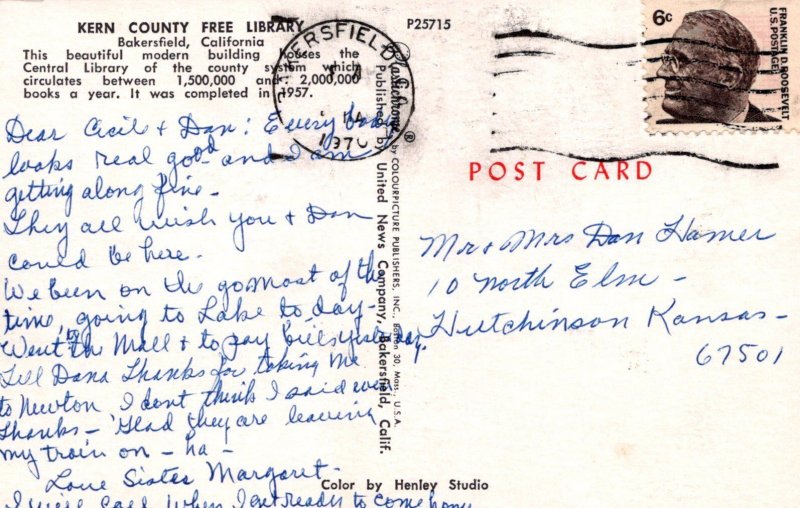 KERN COUNTY FREE LIBRARY
Bakersfield, California
This beautiful modern building houses the
Central Library of the county system which
circulates between 1,500,000 and 2,000,000
books a year. It was completed in 1957.
Dear Cecil & Dan: Every body
looks real good and I am
getting along fine -
They all wish you & Dan
could be here.
We been on the go most of the
time, going to Lake to day -
Went to the Mall & to pay bills yesterday.
Tell Dana Thanks for taking me
to Newton I dont think I said even
Thanks - Glad they are leaving
my train on - ha -
Love Sister Margaret -
I will call when I get ready to come home
P25715
BAKERSFIELD
1970
Plastichrome ® by COLOURPICTURE PUBLISHERS, INC., Boston 30, Mass., U.S.A.
Published by United News Company, Bakersfield, Calif.
Color by Henley Studio
6c
FRANKLIN D. ROOSEVELT
U.S. POSTAGE
POST CARD
Mr & Mrs Dan Hamer
10 North Elm -
Hutchinson Kansas -
67501